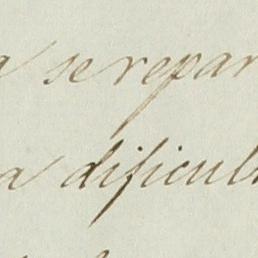 a se repar
a dificul